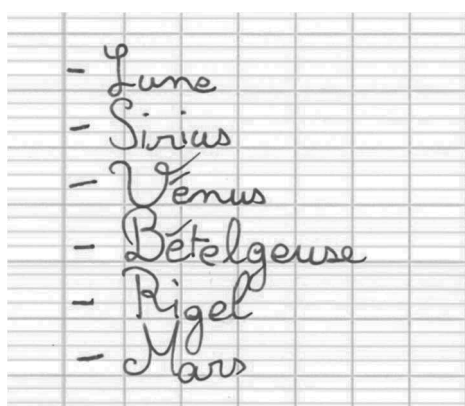 - Lune
- Sirius
- Vénus
- Bételgeuse
- Rigel
- Mars